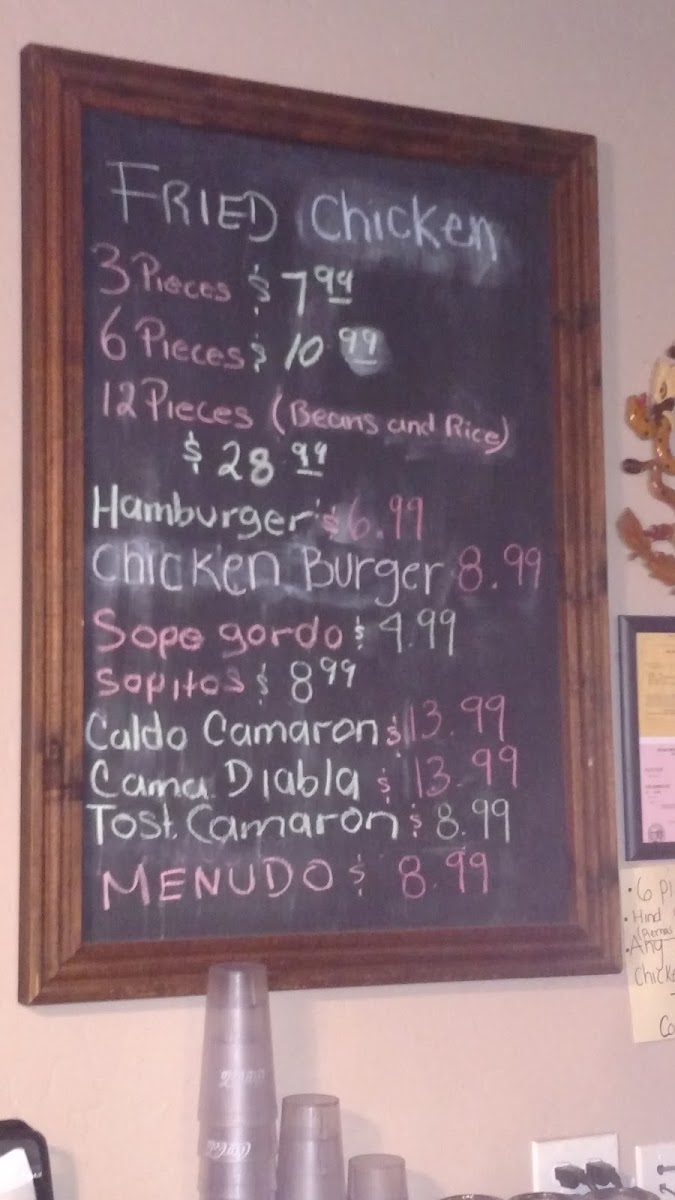 FRIED Chicken
3 Pieces $ 7 99
6 Pieces $ 10 99
12 Pieces (Beans and Rice)
$ 28 99
Hamburger $6.99
Chicken Burger 8.99
Sope gordo $ 4.99
Sopitos $ 8 99
Caldo Camaron $13.99
Cama Diabla $ 13.99
Tost. Camaron $ 8.99
MENUDO $ 8.99
• 6 Pi
• Hind
• Any
Chick
Co
Coca-Cola
Coca-Cola